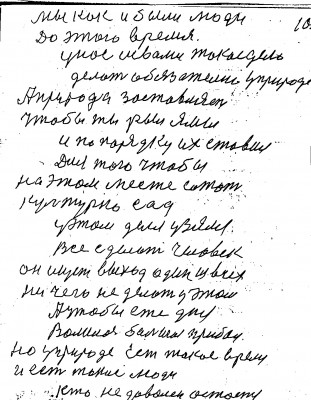 мы как и были люди
до этого время.
у нас с вами такое дело
делат обязателно у природе
А природа заставляет
чтобы ты рыл ямы
и по порядку их ставил
Для того чтобы
на этом месте
културно сад
у этом деле взял.
Все сделает человек
он ищет выход один из всех
ни чего не делат у этом
А чтобы ему
Волной
но у природе ест такое время
и ест такие люди
кто не доволен